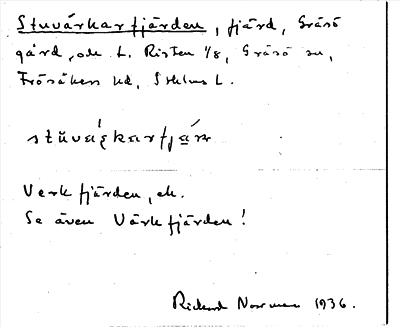 Stuvårkarfjärden, fjärd, Gräsö
gård, ek. L. Risten 1/8, Gräsö sn,
Frösåkers hd, Sthlms L.
Verkfjärden, ek.
Se även Vårkfjärden!
Rickard Norrman 1936.